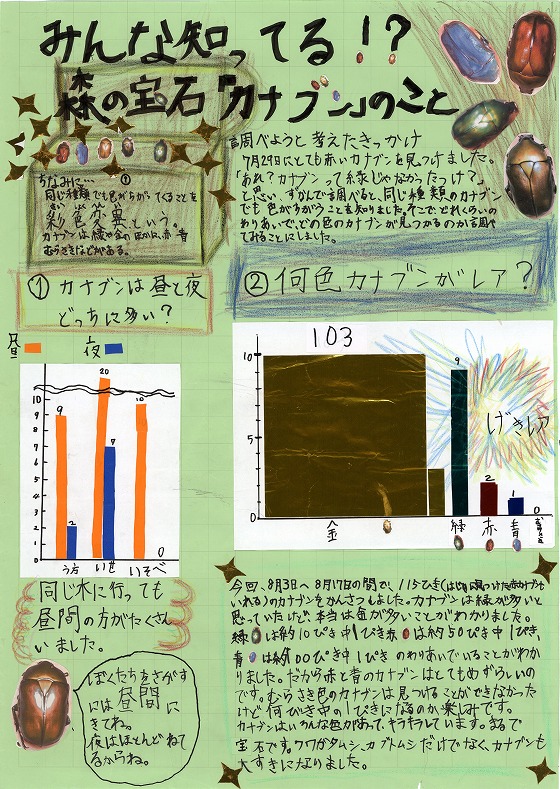 みんな知ってる!?
森の宝石「カナブン」のこと
調べようと考えたきっかけ
7月29日にとても赤いカナブンを見つけました。
「あれ?カナブンって緑じゃなかったっけ?」
と思い、ずかんで調べると、同じ種類のカナブン
でも色がちがうことを知りました。そこで、どれくらいの
わりあいで、どの色のカナブンが見つかるのか調べ
てみることにしました。
ちなみに…
同じ種類でも色がちがってくることを
彩色変異という。
カナブンは緑や金のほかに、赤、青
むらさきなどがある。
①カナブンは昼と夜
どっちに多い?
②何色カナブンがレア?
昼
夜
10
9
8
7
6
5
4
3
2
1
0
9
2
20
7
10
0
いせ
いそべ
103
10
5
0
9
2
1
0
げきレア
金
緑
赤
青
同じ木に行っても
昼間の方がたくさん
いました。
ぼくたちをさがす
には昼間に
きてね。
夜はほとんどねて
るからね。
今回、8月3日へ8月17日の間で、115ひき(はじめに見つけた赤カナブンも
いれる)のカナブンをかんさつしました。カナブンは緑が多いと
思っていたけど、本当は金が多いことがわかりました。
緑は約10ぴき中1ぴき赤は約50ぴき中1ぴき、
青は約100ぴき中1ぴきのわりあいでいることがわか
りました。だから赤と青のカナブンはとてもめずらしいの
です。むらさき色のカナブンは見つけることができなかった
けど何びき中の1ぴきになるのか楽しみです。
カナブンはいろんな色があって、キラキラしています。まるで
宝石です。クワガタムシ、カブトムシだけでなく、カナブンも
大すきになりました。